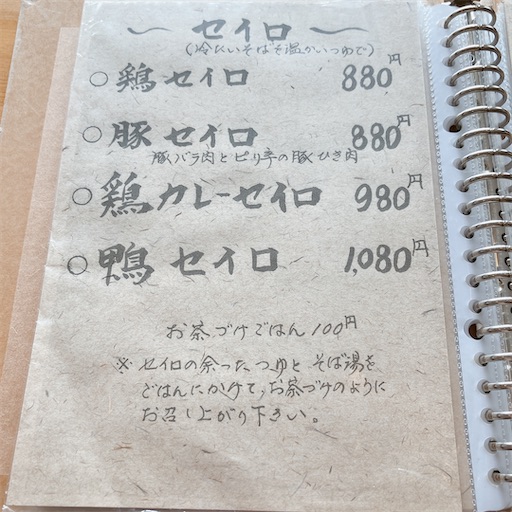 〜 セイロ 〜
(冷たいそばを温かいつゆで)
○鶏セイロ 880円
○豚セイロ 880円
豚バラ肉とピリ辛の豚ひき肉
○鶏カレーセイロ 980円
○鴨セイロ 1,080円
お茶づけごはん100円
※セイロの余ったつゆと そば湯を
ごはんにかけて、お茶づけのように
お召し上がり下さい。